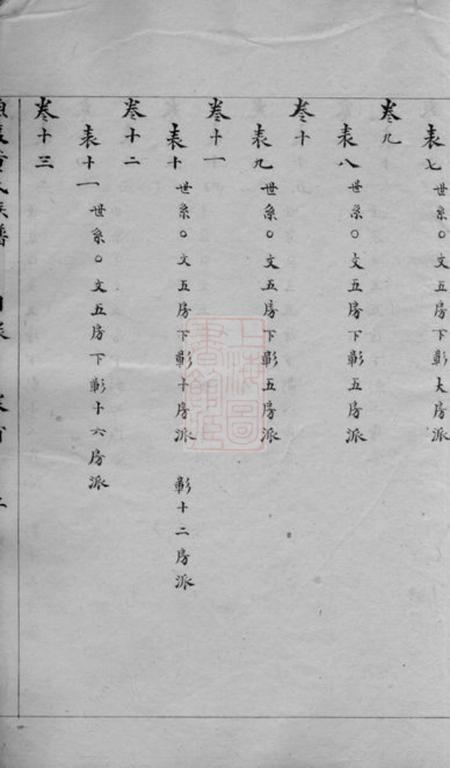 表七世系○文五房下彰大房派
卷九
表八世系○文五房下彰五房派
卷十
表九世系○文五房下彰五房派
卷十一
表十世系○文五房下彰十房派 彰十二房派
卷十二
表十一世系○文五房下彰十六房派
卷十三
氏族譜
上海圖書館藏